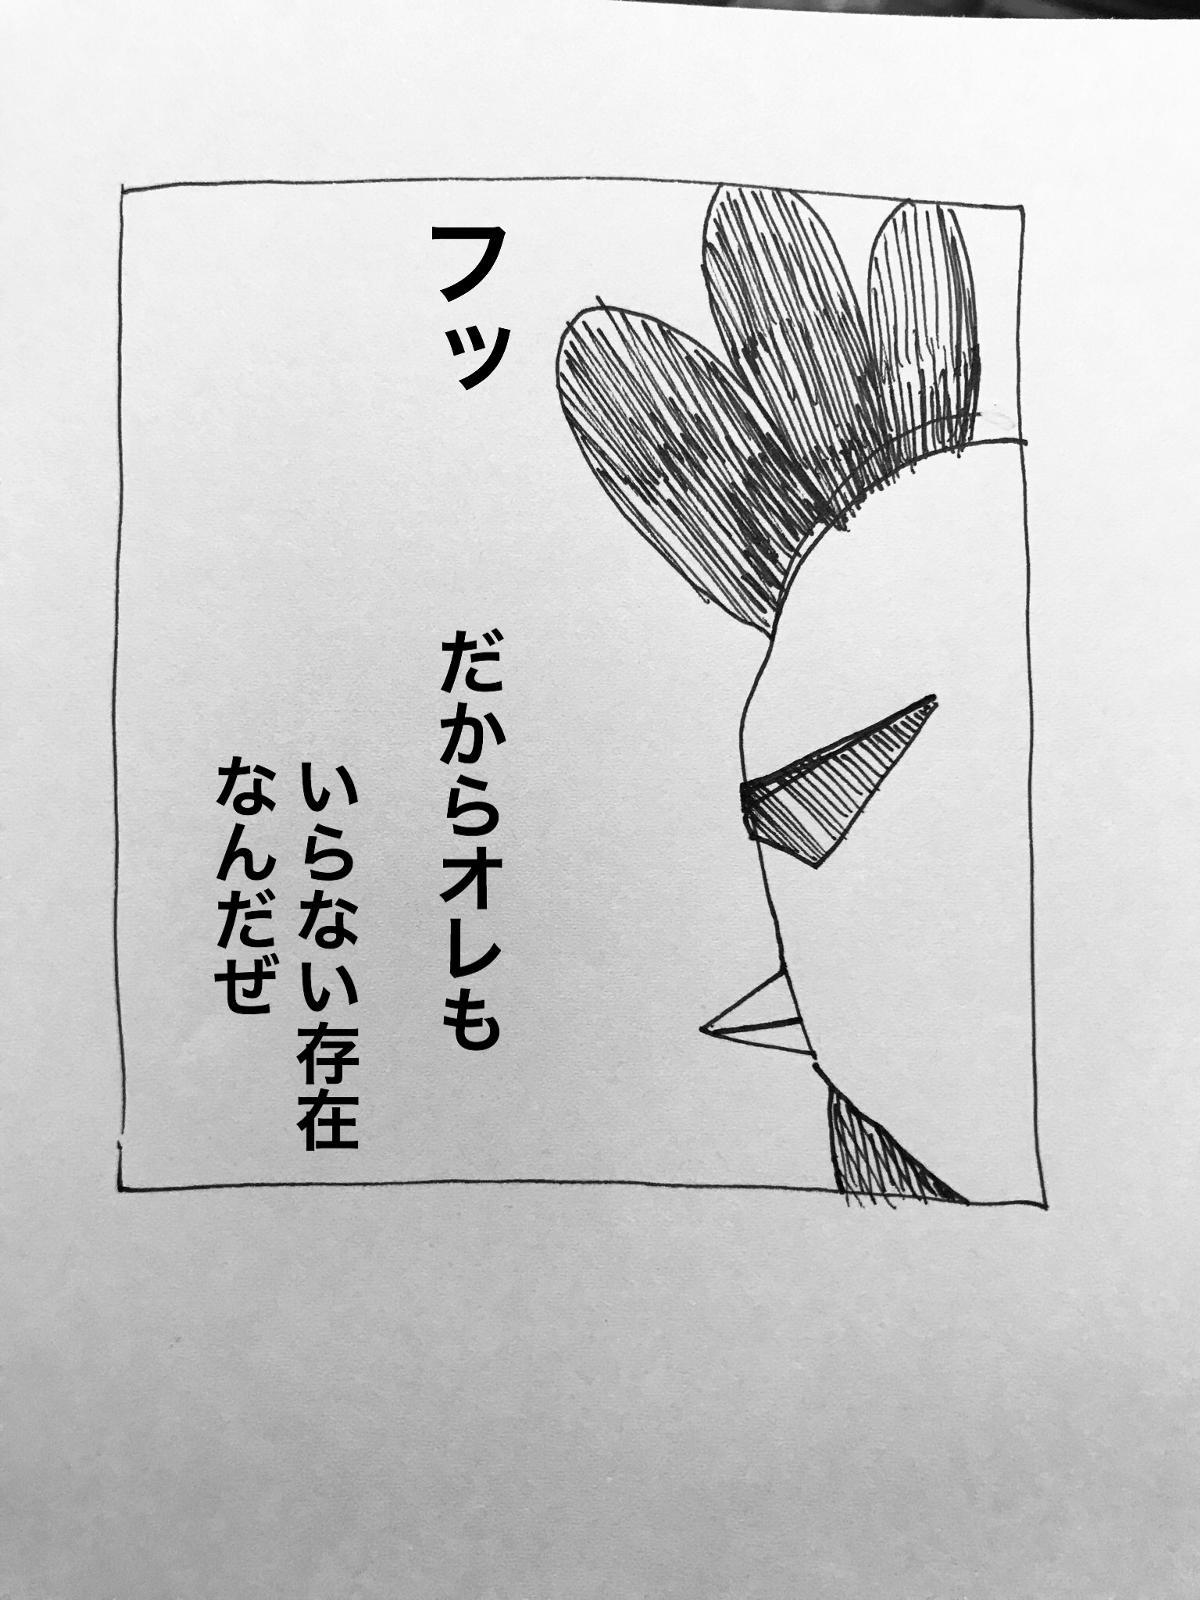 フッ
だからオレも
いらない存在
なんだぜ